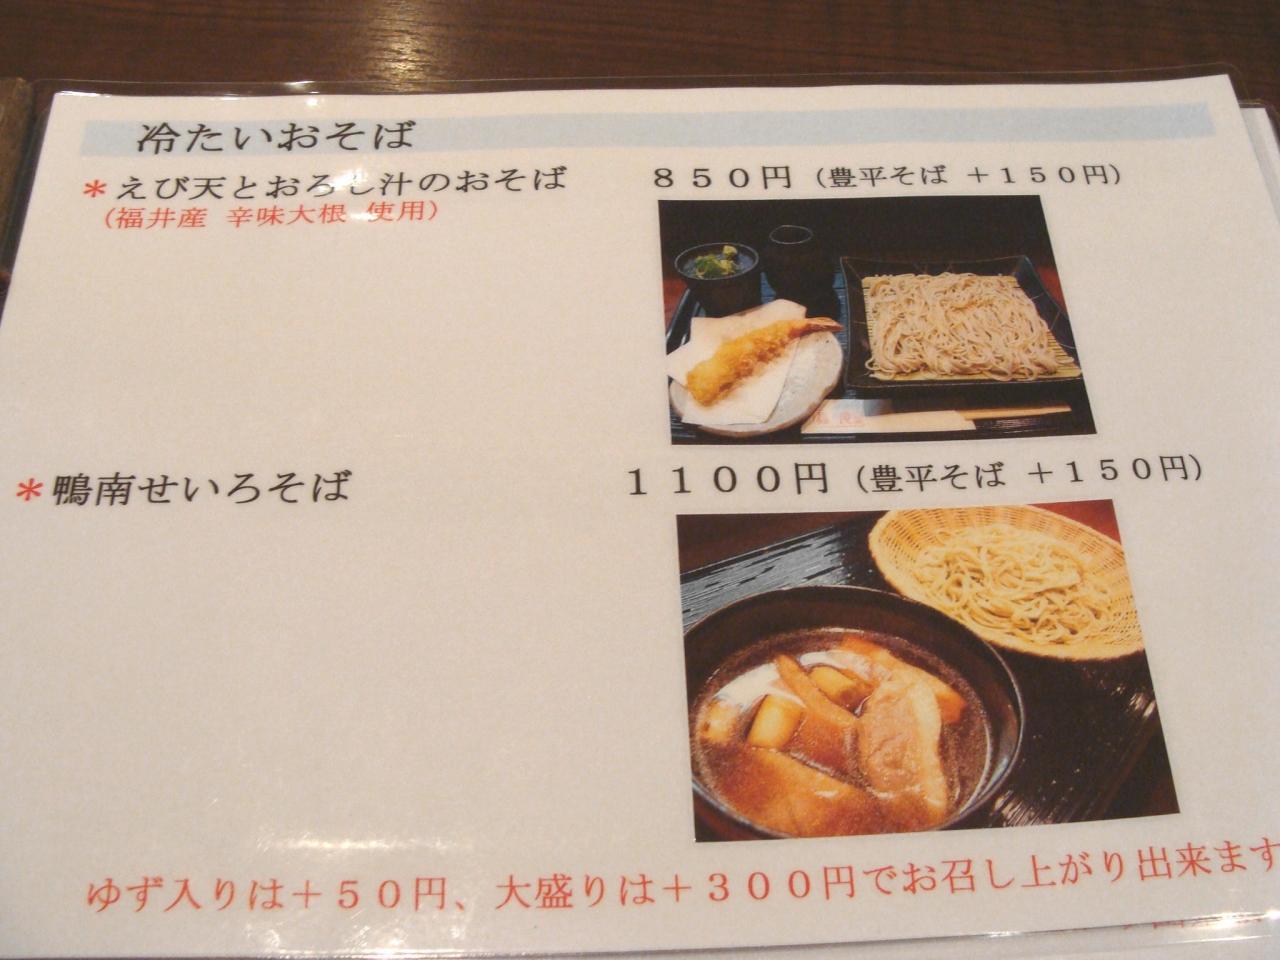 冷たいおそば
*えび天とおろし汁のおそば ８５０円（豊平そば ＋１５０円）
（福井産 辛味大根 使用）
*鴨南せいろそば １１００円（豊平そば ＋１５０円）
ゆず入りは＋５０円、大盛りは＋３００円でお召し上がり出来ます